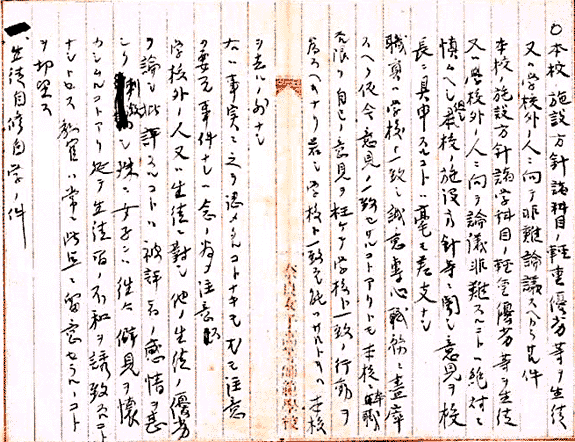 ○本校ノ施設方針諸科目ノ軽重優劣等ヲ生徒
又ハ学校外ノ人ニ向テ非難論議スヘカラサル件
本校ノ施設方針諸学科目ノ軽重優劣等ヲ生徒
又ハ学校外ノ人ニ向テ論議非難スルコトハ絶対ニ
慎ムヘシ本校ノ施設方針等ニ関シ意見ヲ校
長ニ具申スルコトハ毫モ差支ナシ
職員ハ学校ト一致シ誠意専心職務ニ尽瘁
スヘク仮令意見ノ一致セサルコトアリトモ本校ニ奉職
ノ限リ自己ノ意見ヲ枉ケテ学校ト一致ノ行動ヲ
為スヘキナリ若シ学校ト一致シ能ハサルトキハ本校
ヲ去ルノ外ナシ
ナルハ事実之ヲ認メタルコトナキモ尤モ注意
ヲ要スル事件ナレハ念ノ為メ注意ス
学校外ノ人又ハ生徒ニ対シ他ノ生徒ノ優劣
ヲ論シ批評スルコトハ被評者ノ感情ヲ甚
シク刺激シ殊ニ女子ニハ往々僻見ヲ懐
カシムルコトアリ延テ生徒間ノ不和ヲ誘致スルコト
ナシトセス教官ハ常ニ此点ニ留意セラルヽコト
ヲ切望ス
一、生徒自修自学ノ件
奈良女子高等師範学校